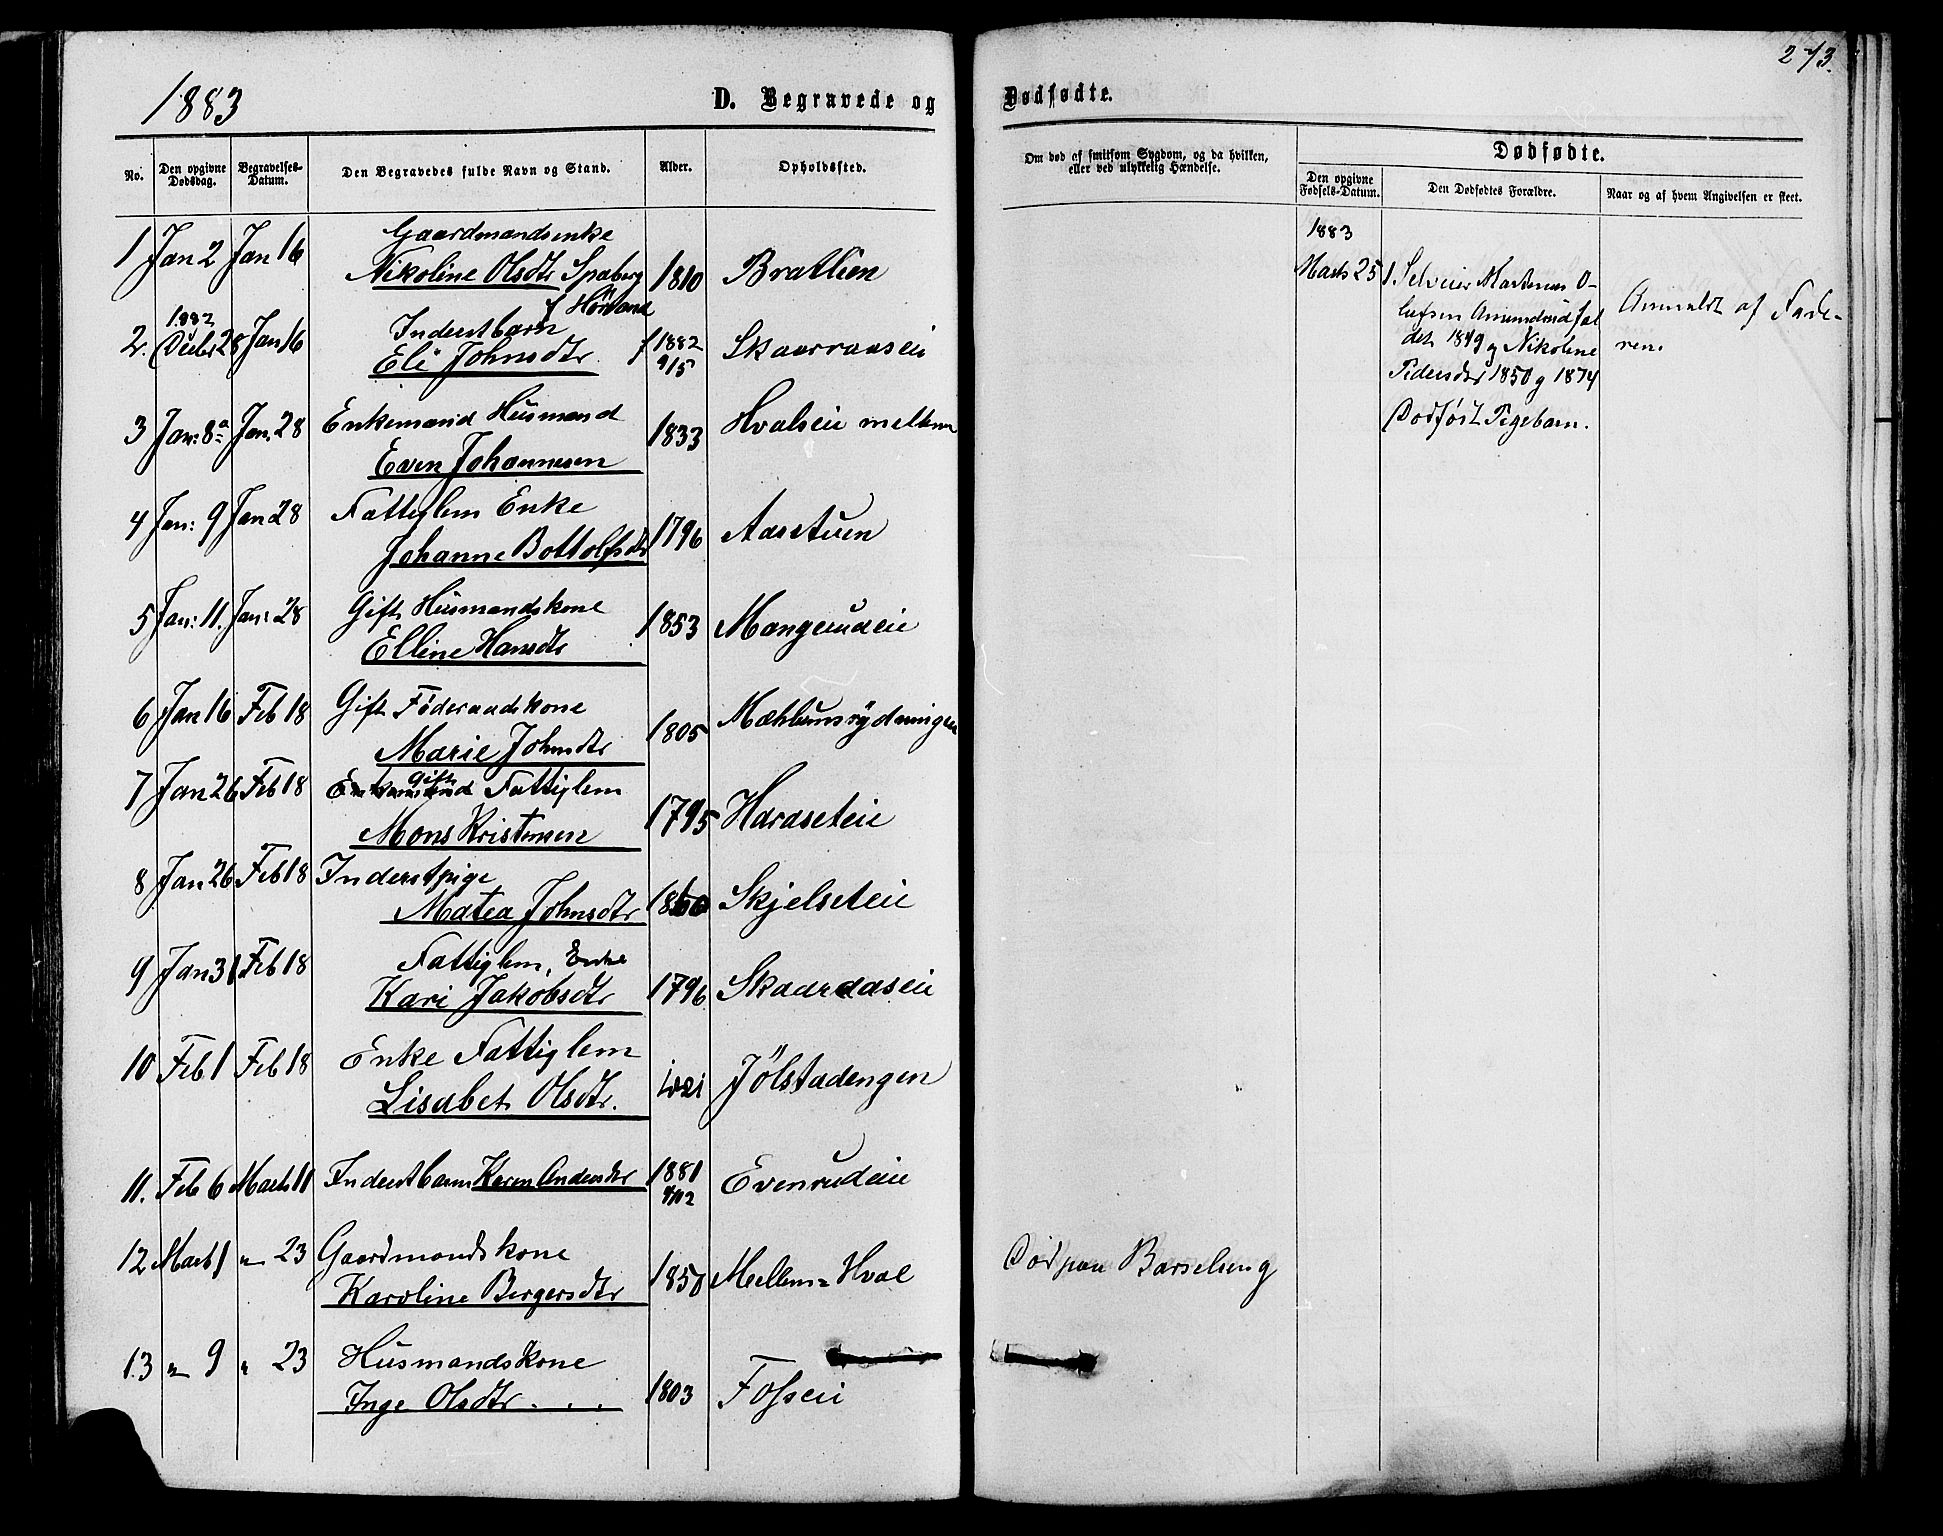 273.
1883
D. Begravede og Dødfødte.
No.
Den opgivne Dødsdag.
Begravelses-Datum.
Den Begravedes fulde Navn og Stand.
Alder.
Opholdssted.
Om død af smitsom Sygdom, og da hvilken,
eller ved ulykkelig Hændelse.
Dødfødte.
Den opgivne Fødsels-Datum.
Den Dødfødtes Forældre.
Naar og af hvem Angivelsen er skeet.
Gaardmandsenke
1 Jan 2 Jan 16 Nikoline Olsdtr Spaberg 1810 Bratlien
f Hörsand
1882 Inderstbarn
2. Decbr 28 Jan 16 Eli Johnsdtr. f 1882 9/15 Skaarraaseie
3 Jan: 8 Jan. 28 Enkemand Husmand
Even Johannesen 1833 Hvalseie mellem
4 Jan: 9 Jan 28 Fattiglem Enke
Johanne Bottolfsdtr 1796 Aasstuen
5 Jan: 11. Jan: 28 Gift Husmandskone
Elline Hansdtr 1853 Mangerudeie
6 Jan 16 Feb 18 Gift Føderaadskone
Marie Johnsdtr 1805 Mæhlumsrydningen
7 Jan 26 Feb 18 Enkemand Gift Fattiglem
Mons Kristensen 1795 Haraseteie
8 Jan 26 Feb 18 Inderstpige
Matea Johnsdtr 1860 Skjelseteie
9 Jan 31 Feb 18 Fattiglem, Enke
Kari Jakobsdtr 1796 Skaaraaseie
10 Feb 1 Feb 18 Enke Fattiglem
Lisabet Olsdtr. Jölstadengen
11. Feb 6 Marts 11 Inderstbarn Karen Andersdtr 1881 Evenrudeie
12 Marts 1 " 23 Gaardmandskone
Karoline Bergersdtr 1850 Mellem=Hval Død paa Barselseng
13 " 9 " 23 Husmandskone
Inge Olsdtr . . . 1803 Fosseie
1883
Marts 25 1. Selveier Martenus O-
lufsen Amundrud føl
det 1849 og Nikoline
Pedersdtr 1850 g 1874
Dødfødt Pigebarn.
Anmeldt af Fade-
ren.